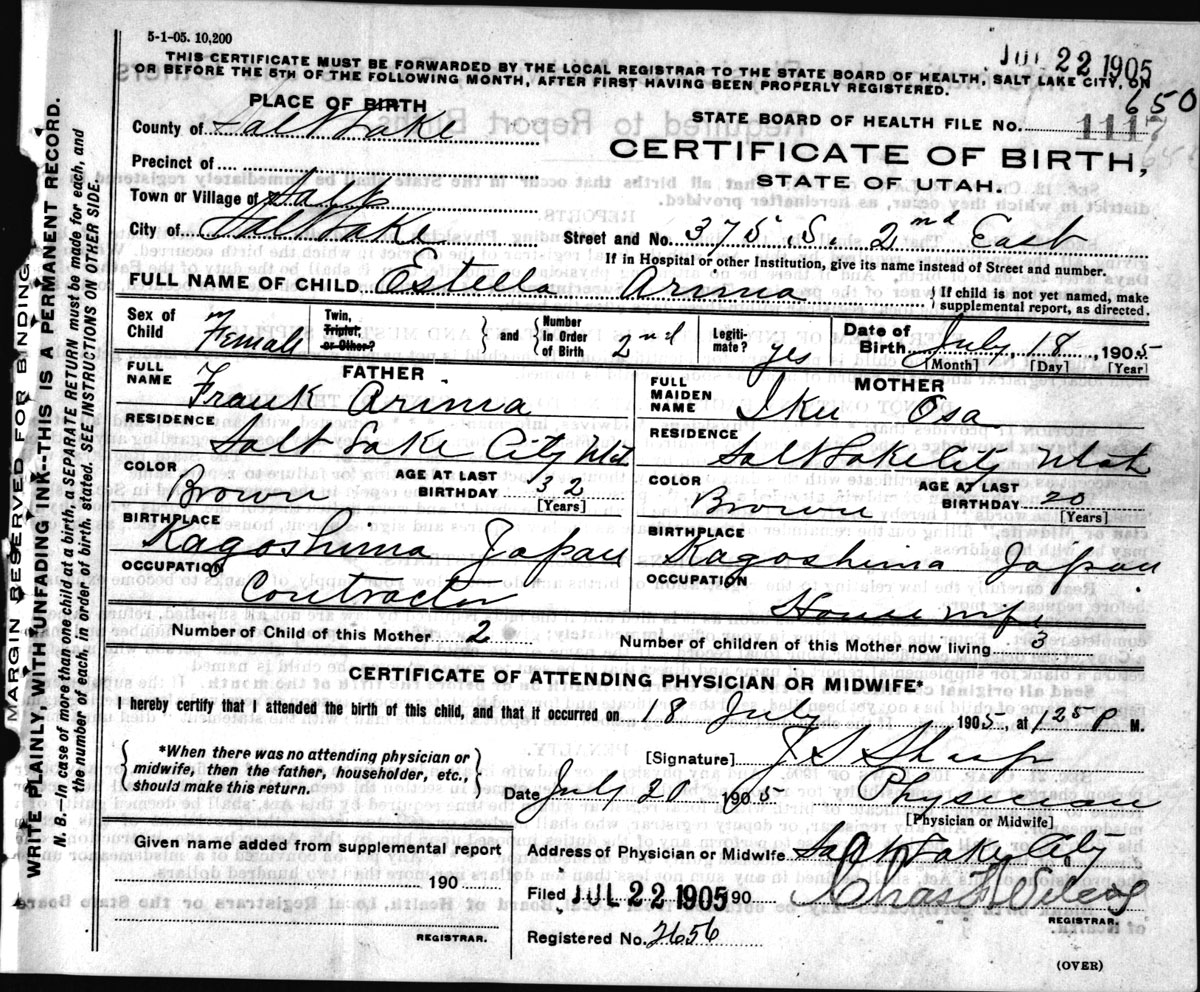 5-1-05. 10,200
JUL 22 1905
THIS CERTIFICATE MUST BE FORWARDED BY THE LOCAL REGISTRAR TO THE STATE BOARD OF HEALTH, SALT LAKE CITY, ON
OR BEFORE THE 5TH OF THE FOLLOWING MONTH, AFTER FIRST HAVING BEEN PROPERLY REGISTERED.
650
PLACE OF BIRTH
STATE BOARD OF HEALTH FILE No. 1117
County of Salt Lake
CERTIFICATE OF BIRTH,
STATE OF UTAH.
Precinct of
Town or Village of
City of Salt Lake
Street and No. 375 S. 2nd East
If in Hospital or other Institution, give its name instead of Street and number.
FULL NAME OF CHILD Estella Arima
If child is not yet named, make
supplemental report, as directed.
Sex of Child Female
Twin, Triplet, or Other?
and Number in Order of Birth 2nd
Legitimate? yes
Date of Birth July 18, 1905
[Month] [Day] [Year]
FATHER
FULL NAME Frank Arima
RESIDENCE Salt Lake City Utah
COLOR Brown
AGE AT LAST BIRTHDAY 32
[Years]
BIRTHPLACE Kagoshima Japan
OCCUPATION Contractor
MOTHER
FULL MAIDEN NAME Iku Osa
RESIDENCE Salt Lake City Utah
COLOR Brown
AGE AT LAST BIRTHDAY 20
[Years]
BIRTHPLACE Kagoshima Japan
OCCUPATION House wife
Number of Child of this Mother 2
Number of children of this Mother now living 3
CERTIFICATE OF ATTENDING PHYSICIAN OR MIDWIFE*
I hereby certify that I attended the birth of this child, and that it occurred on 18 July 1905, at 1250 P M.
*When there was no attending physician or
midwife, then the father, householder, etc.,
should make this return.
[Signature] J S Sharp
Date July 20 1905 Physician
[Physician or Midwife]
Given name added from supplemental report
190
REGISTRAR.
Address of Physician or Midwife Salt Lake City
Filed JUL 22 1905 190
REGISTRAR.
Registered No. 2656
(OVER)
MARGIN RESERVED FOR BINDING
WRITE PLAINLY, WITH UNFADING INK--THIS IS A PERMANENT RECORD.
N. B.--In case of more than one child at a birth, a SEPARATE RETURN must be made for each, and
the number of each, in order of birth, stated. SEE INSTRUCTIONS ON OTHER SIDE.